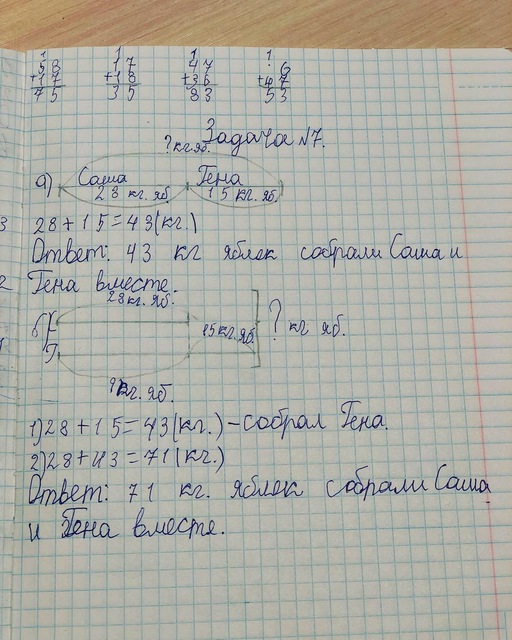 1 1 1 1
58 17 47 6
+17 +18 +36 +47
75 35 83 53
Задача №7.
? кг яб.
а) Саша Гена
28 кг. яб. 15 кг. яб.
28+15=43(кг.)
Ответ: 43 кг яблок собрали Саша и
Гена вместе.
28 кг. яб.
б) 15 кг. яб. ? кг яб.
кг. яб.
1)28+15=43(кг.)–собрал Гена.
2)28+43=71(кг.)
Ответ: 71 кг. яблок собрали Саша
и Гена вместе.